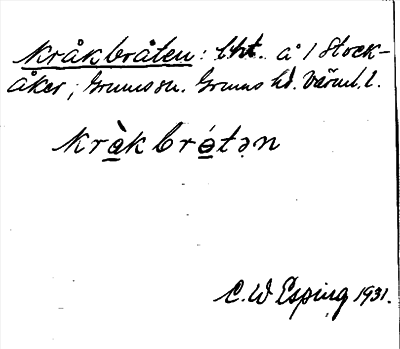 Kråkbråten: lht. å 1 Stock-
åker, Grums sn. Grums hd. Värml. l.
krằkbrátən
C. W. Esping 1931.